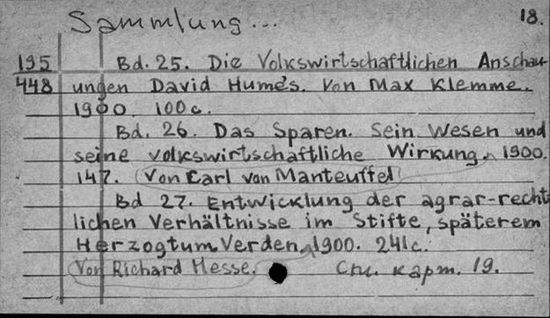 Sammlung... 18.
195 Bd. 25. Die Volkswirtschaftlichen Anschau-
448 ungen David Hume's. Von Max Klemme.
1900. 100 c.
Bd. 26. Das Sparen. Sein Wesen und
seine volkswirtschaftliche Wirkung. 1900.
147. Von Carl von Manteuffel
Bd 27. Entwicklung der agrar-recht
lichen Verhältnisse im Stifte, späterem
Herzogtum Verden, 1900. 241c.
Von Richard Hesse. См. карт. 19.